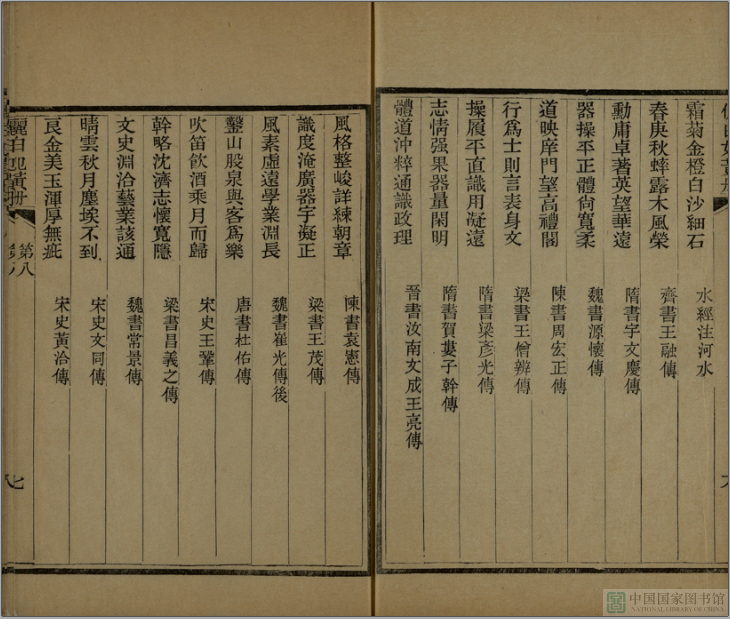 霜菊金橙白沙細石 水經注河水
春庚秋蟀露木風榮 齊書王融傳
勳庸卓著英望華遠 隋書宇文慶傳
器操平正體尙寬柔 魏書源懷傳
道映庠門望高禮閣 陳書周宏正傳
行爲士則言表身文 梁書王僧辨傳
操履平直識用凝遠 隋書梁彥光傳
志情强果器量閑明 隋書賀婁子幹傳
體道沖粹通識政理 晉書汝南文成王亮傳
風格整峻詳練朝章 陳書袁憲傳
識度淹廣器宇凝正 梁書王茂傳
風素虛遠學業淵長 魏書崔光傳後
鑿山股泉與客爲樂 唐書杜佑傳
吹笛飮酒乘月而歸 宋史王鞏傳
幹略沈濟志懷寬隱 梁書昌義之傳
文史淵洽藝業該通 魏書常景傳
晴雲秋月塵埃不到 宋史文同傳
良金美玉渾厚無疵 宋史黃洽傳
第八
七
中国国家图书馆
NATIONAL LIBRARY OF CHINA